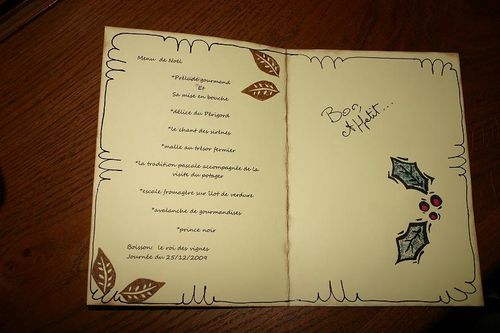 Menu de Noël
*Prélude gourmand
Et
Sa mise en bouche
*délice du Périgord
*le chant des sirènes
*malle au trésor fermier
*la tradition pascale accompagnée de la
visite du potager
*escale fromagère sur îlot de verdure
*avalanche de gourmandises
*prince noir
Boisson: le roi des vignes
Journée du 25/12/2009
Bon
Appétit...